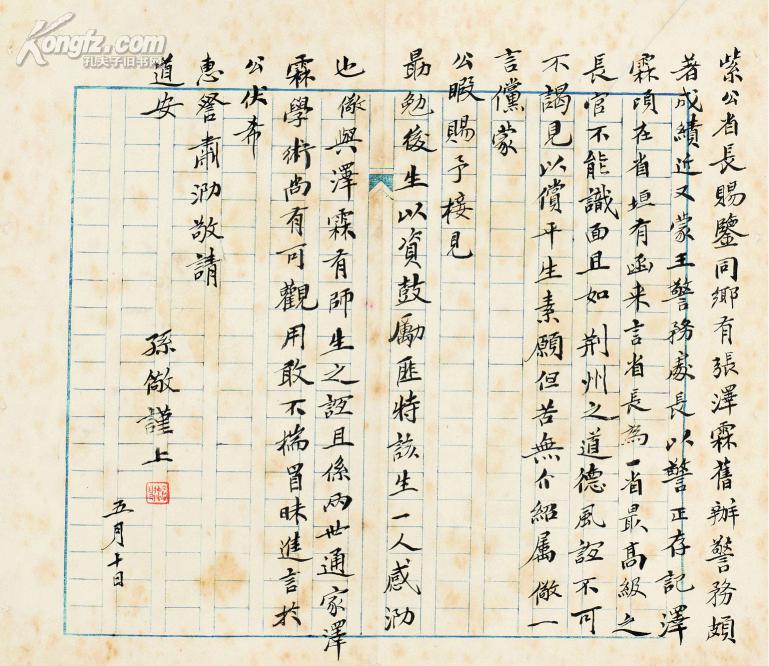 紫公省長賜鑒同鄉有張澤霖舊辦警務頗
著成績近又蒙王警務處長以警正存記澤
霖頃在省垣有函来言省長為一省最高級之
長官不能識面且如荆州之道德風誼不可
不謁見以償平生素願但苦無介紹属儆一
言儻蒙
公暇賜予接見
勗勉後生以資鼓勵匪特該生一人感泐
也儆與澤霖有師生之誼且係兩世通家澤
霖學術尚有可觀用敢不揣冒昧進言於
公伏希
惠詧肅泐敬請
道安
孫儆謹上
五月十日
Kongfz.com
孔夫子旧书网